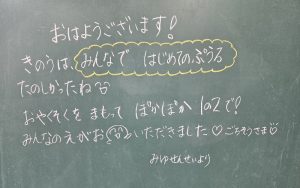 おはようございます!
きのうは、みんなで はじめてのぷうる
たのしかったね
おやくそくを まもって ぽかぽか 1の2で!
みんなのえがお いただきました♡ごちそうさま♡
みゆせんせいより